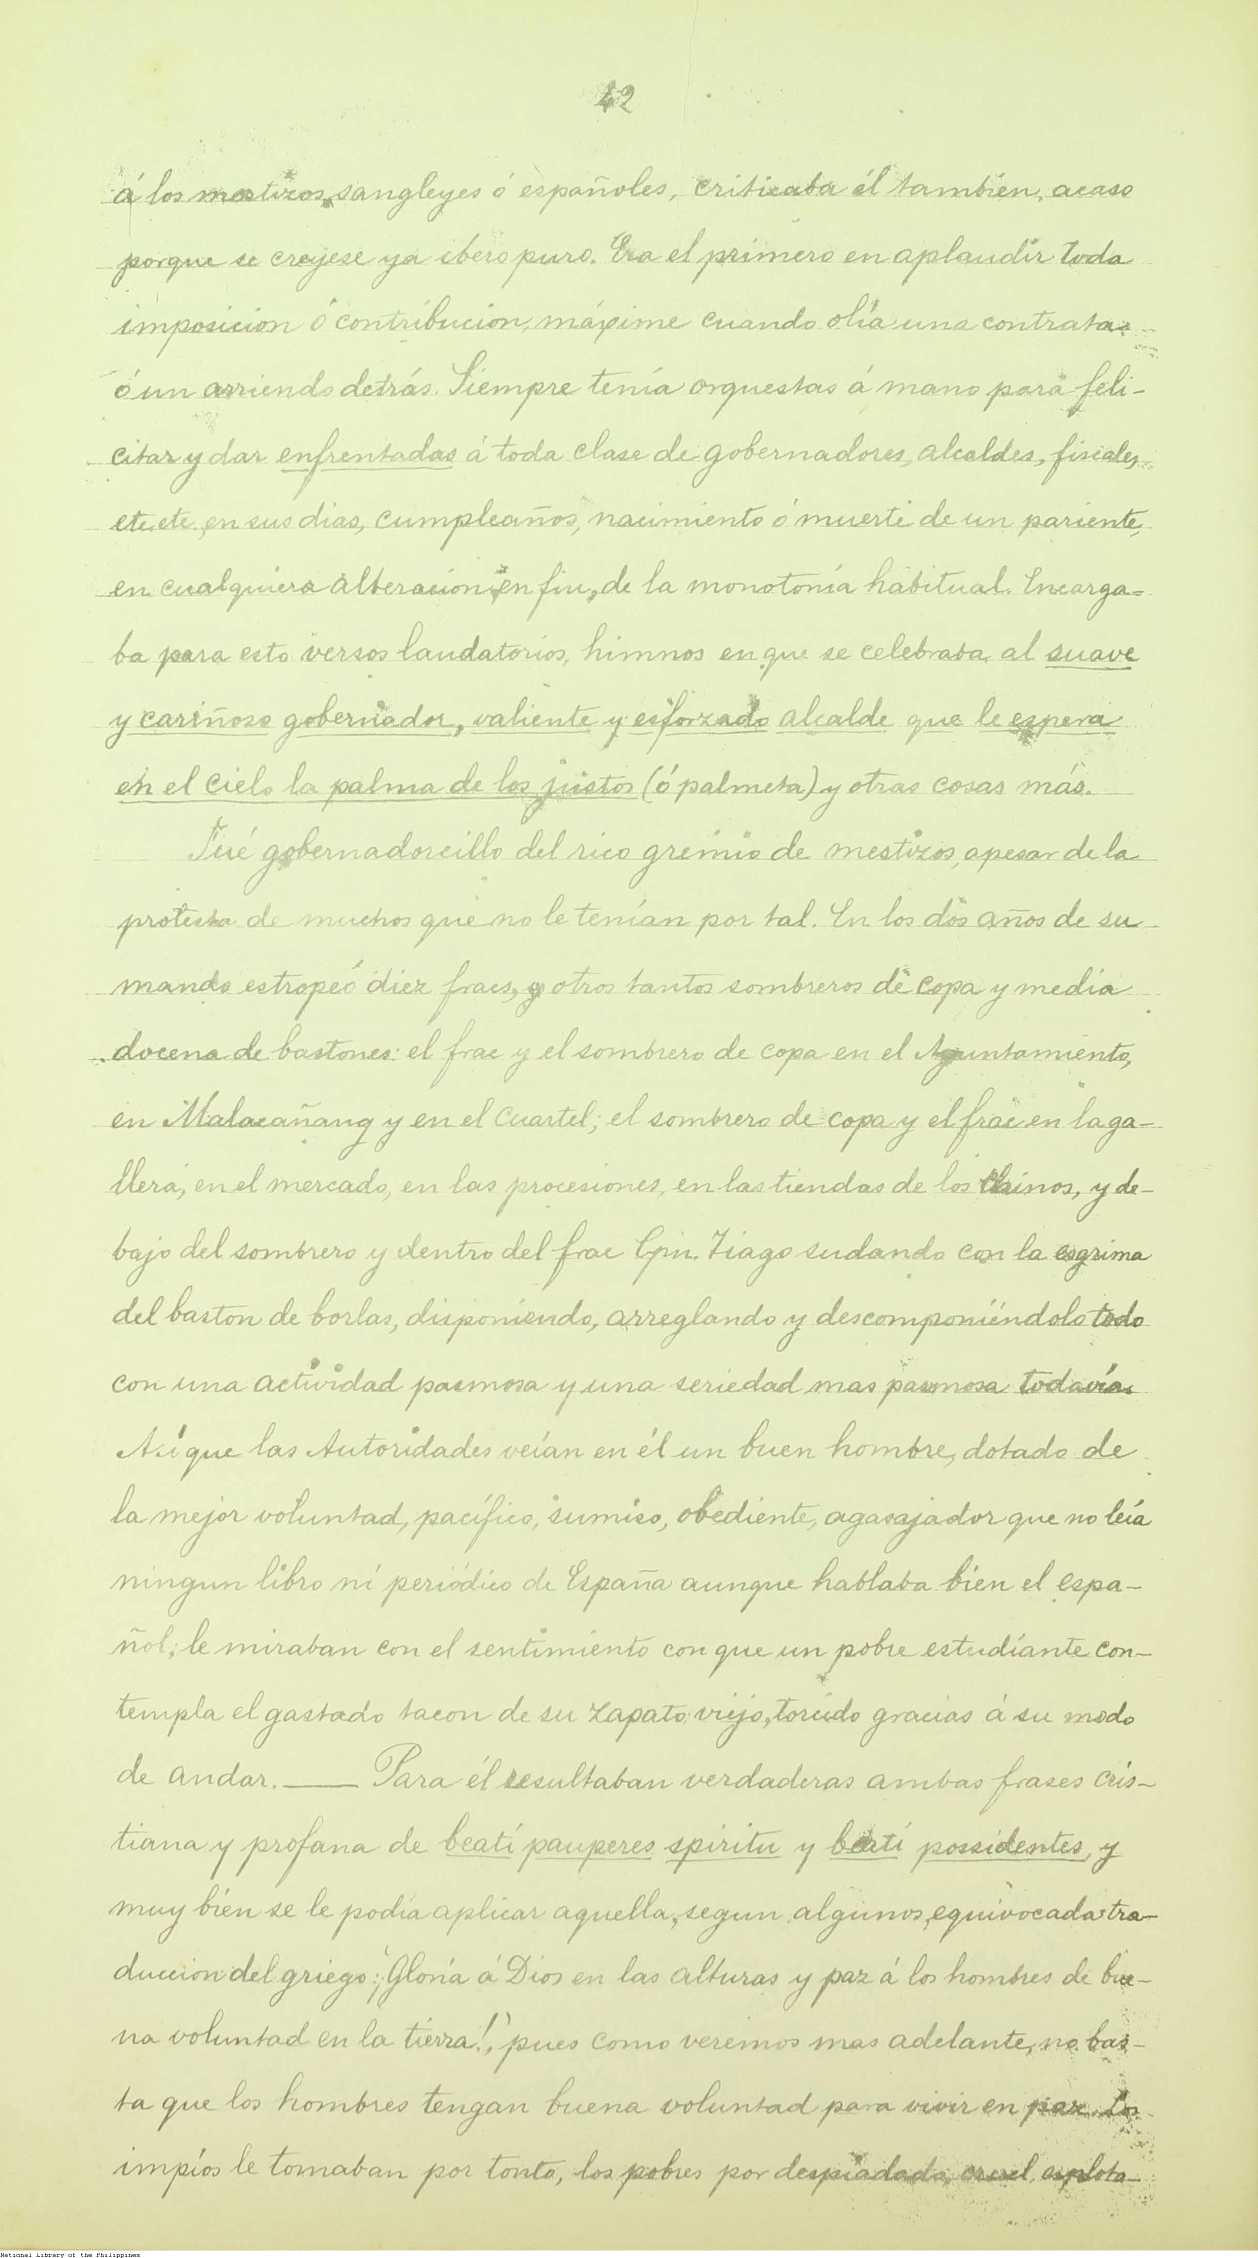 42
á los mestizos, sangleyes ó españoles, criticaba él tambien, acaso
porque se creyese ya ibero puro. Era el primero en aplaudir toda
imposicion ó contribucion, máxime cuando olía una contrata
ó un arriendo detrás. Siempre tenía orquestas á mano para feli-
citar y dar enfrentadas á toda clase de gobernadores, alcaldes, fiscales,
etc. etc. en sus dias, cumpleaños, nacimiento ó muerte de un pariente,
en cualquiera alteracion en fin, de la monotonía habitual. Encarga-
ba para esto versos laudatorios, himnos en que se celebraba al suave
y cariñoso gobernador, valiente y esforzado alcalde que le espera
en el cielo la palma de los justos (ó palmeta) y otras cosas más.
Fué gobernadorcillo del rico gremio de mestizos, apesar de la
protesta de muchos que no le tenían por tal. En los dos años de su
mando estropeó diez fracs, y otros tantos sombreros de copa y media
docena de bastones: el frac y el sombrero de copa en el Ayuntamiento,
en Malacañang y en el cuartel; el sombrero de copa y el frac en la ga-
llera, en el mercado, en las procesiones, en las tiendas de los chinos, y de-
bajo del sombrero y dentro del frac Cpn. Tiago sudando con la esgrima
del baston de borlas, disponiendo, arreglando y descomponiéndolo todo
con una actividad pasmosa y una seriedad mas pasmosa todavía.
Así que las Autoridades veían en él un buen hombre, dotado de
la mejor voluntad, pacífico, sumiso, obediente, agasajador que no leía
ningun libro ni periódico de España aunque hablaba bien el espa-
ñol; le miraban con el sentimiento con que un pobre estudiante con-
templa el gastado tacon de su zapato viejo, torcido gracias á su modo
de andar. —— Para él resultaban verdaderas ambas frases cris-
tiana y profana de beati pauperes spiritu y beati possidentes, y
muy bien se le podía aplicar aquella, segun algunos, equivocada tra-
duccion del griego: "¡Gloria á Dios en las alturas y paz á los hombres de bue-
na voluntad en la tierra!", pues como veremos mas adelante, no bas-
ta que los hombres tengan buena voluntad para vivir en paz. Los
impíos le tomaban por tonto, los pobres por despiadado, cruel, esplota-
National Library of the Philippines